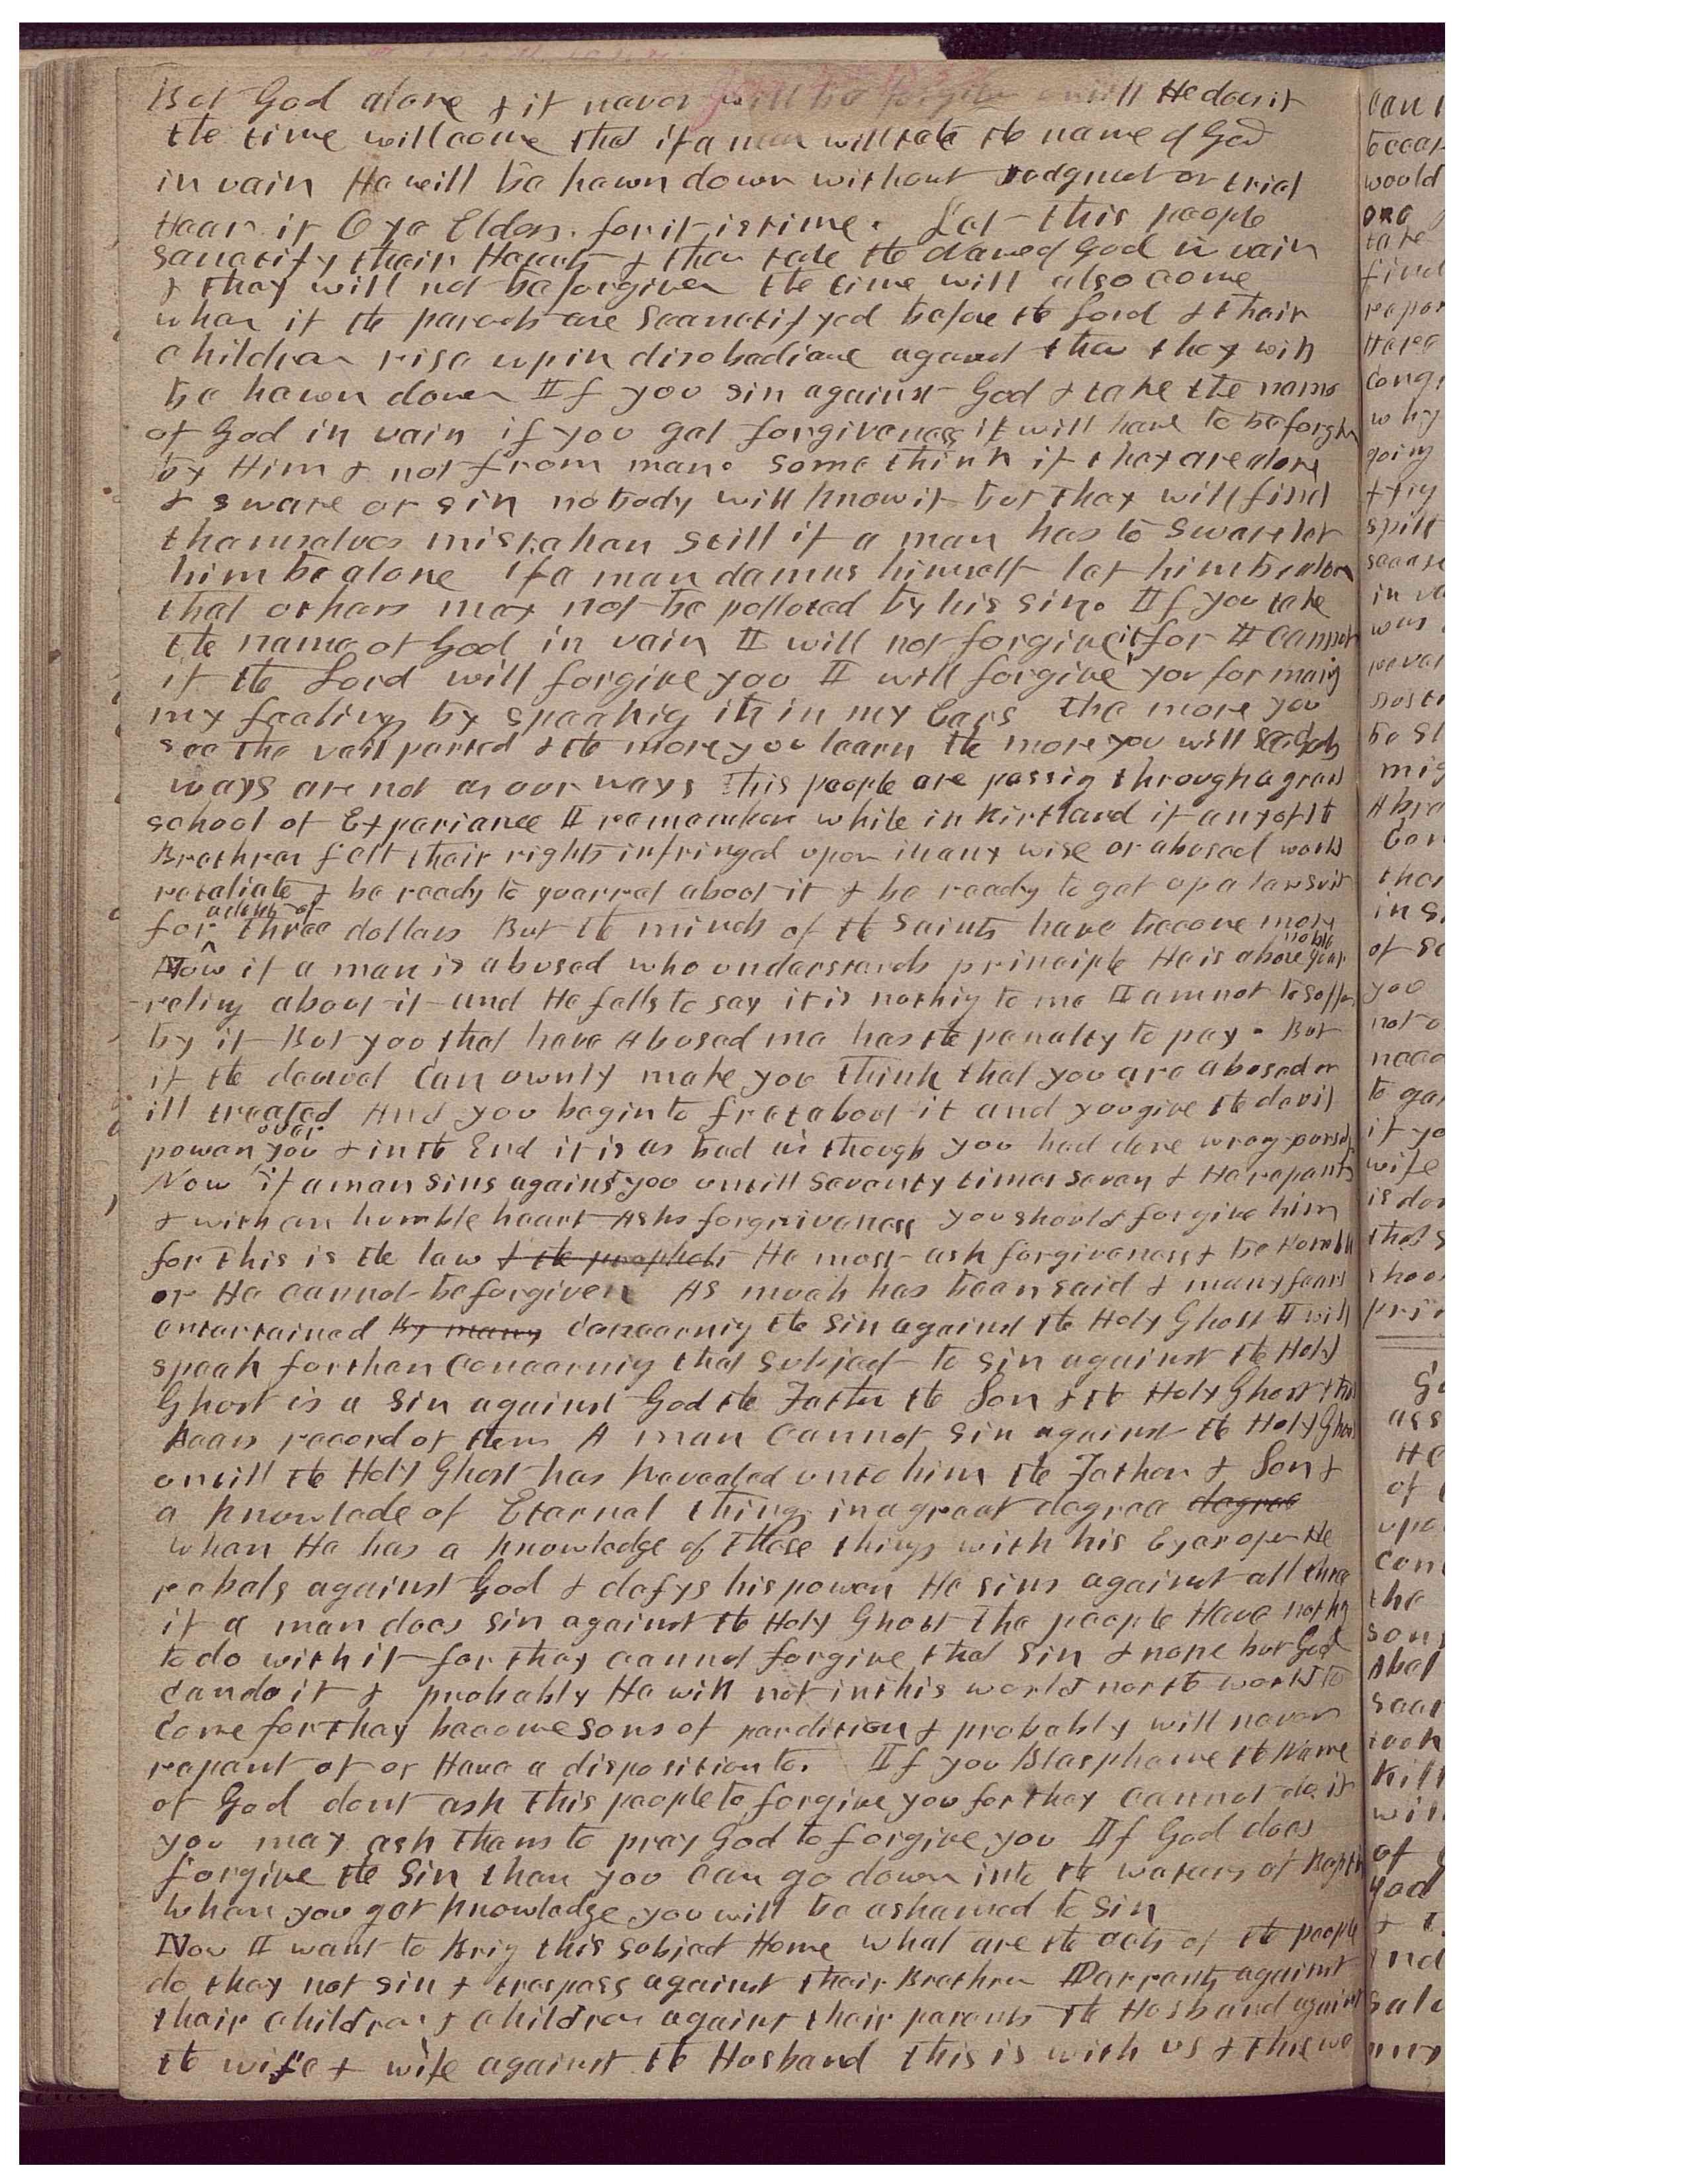 But God alone & it never will be forgiven untill He does it
the time will come that if a man will take the name of God
in vain He will be hewn down without Judgment or trial
Hear it O ye Elders. for it is time. Let this people
sanctify their Hearts & then take the name of God in vain
& they will not be forgiven the time will also come
when if the parents are Sanctifyed before the Lord & their
children rise up in disobediance against them they will
be hewn down If you sin against God & take the name
of God in vain if you get forgiveness it will have to be forgiven
by Him & not from man. some think if they are alone
& sware or sin nobody will know it but they will find
themselves mistaken Still if a man has to sware let
him be alone if a man damns himself let him be alone
that others may not be polluted by his sin. If you take
the name of God in vain I will not forgive it for I cannot
if the Lord will forgive you I will forgive you for
my feelings by speakig it in my Ears the more you
see the vail parted & the more you learn the more you will see Gods
ways are not as our ways this people are passig through a great
school of Experiance I remember while in Kirtland if any of the
Brethren felt their rights infringed upon in any wise or abused would
retaliate & be ready to quarrel about it & be ready to get up a lawsuit
for a debt of three dollars But the minds of the Saints have become more noble
Now if a man is abused who understands principle He is above quar
-reling about it and He falls to say it is nothig to me I am not to suffer
by it But you that have Abused me has the penalty to pay. But
if the devel Can ownly make you think that you are abused or
ill treated And you begin to fret about it and you give the devil
power over you & in the End it is as bad as though you had done wrong
Now if a man sins against you untill Seventy times Seven & He repents
& with an humble heart Asks forgiveness you should forgive him
for this is the law & the prophets He must ask forgiveness & be Humble
or He cannot be forgiven As much has been said & many fears
entertained By many Concerning the Sin against the Holy Ghost I will
speak further Concernig that Subject to sin against the Holy
Ghost is a Sin against God the Father the Son & the Holy Ghost that
Bears record of them A man Cannot Sin against the Holy Ghost
untill the Holy Ghost has Revealed unto him the Father & Son &
a knowlede of Eternal things in a great degree degree
when He has a knowledge of those things with his Eyes open He
rebels against God & defys his power He sins against all three
if a man does sin against the Holy Ghost the people Have nothig
to do with it for they cannot forgive that Sin & none but God
Can do it & probably He will not in this world nor the world to
Come for they become sons of perdition & probably will never
repent of or Have a disposition to. If you Blaspheme the Name
of God dont ask this people to forgive you for they Cannot do it
you may ask them to pray God to forgive you If God does
forgive the Sin then you Can go down into the waters of Baptism
when you get knowledge you will be ashamed to Sin
Now I want to Brig this subject Home what are the acts of the people
do they not sin & trespass against their Brethren Parrents against
their children & children against their parents the Husband against
the wife & wife against the Husband this is with us & this we